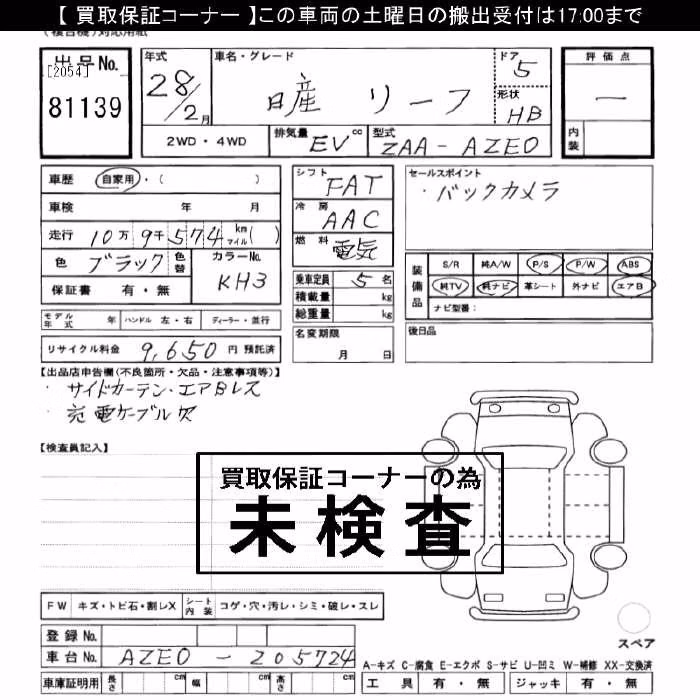 【 買取保証コーナー 】この車両の土曜日の搬出受付は17:00まで
出品No.
[2054]
81139
年式
28/2月
車名・グレード
日産 リーフ
ドア
5
形状
HB
評価点
―
内装
2WD・4WD
排気量
EV cc
型式
ZAA-AZE0
車歴 自家用・( )
車検 年 月
走行 10万9千574 km マイル( )
色 ブラック 色替
カラーNo.
KH3
保証書 有・無
モデル年式 年 ハンドル 左・右 ディーラー・並行
リサイクル料金 9,650 円 預託済
シフト
FAT
冷房
AAC
燃料
電気
乗車定員 5 名
積載量 kg
総重量 kg
名変期限
月 日
セールスポイント
・バックカメラ
装備品
S/R 純A/W P/S P/W ABS
純TV 純ナビ 革シート 外ナビ エアB
ナビ型番:
後日品
【出品店申告欄(不良箇所・欠品・注意事項等)】
・サイドカーテン・エアBレス
・充電ケーブル欠
【検査員記入】
買取保証コーナーの為
未検査
FW キズ・トビ石・割レX シート内装 コゲ・穴・汚レ・シミ・破レ・スレ
登録No.
車台No. AZE0-205724
車庫証明用 長さ cm 幅 cm 高さ cm
スペア
A-キズ C-腐食 E-エクボ S-サビ U-凹ミ W-補修 XX-交換済
工具 有・無 ジャッキ 有・無